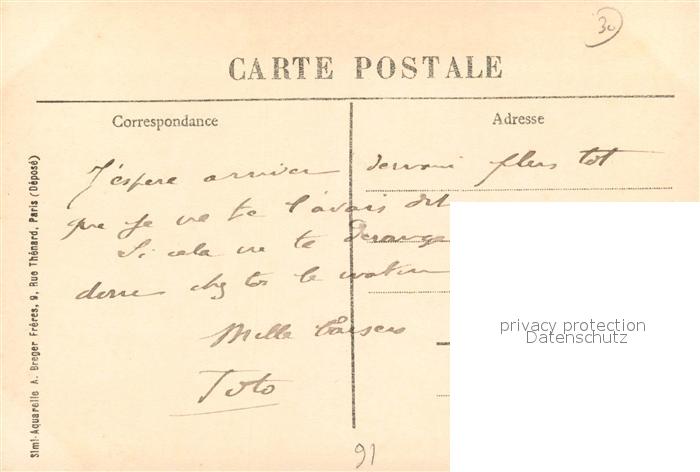 30
CARTE POSTALE
Correspondance
Adresse
J'espere arriver demain plus tot
que je ne te l'avais dit
Si cela ne te derange
chez toi le matin
Mille baisers
Toto
91
Simi-Aquarelle A. Breger Frères, 9, Rue Thénard, Paris (Déposé)
privacy protection
Datenschutz